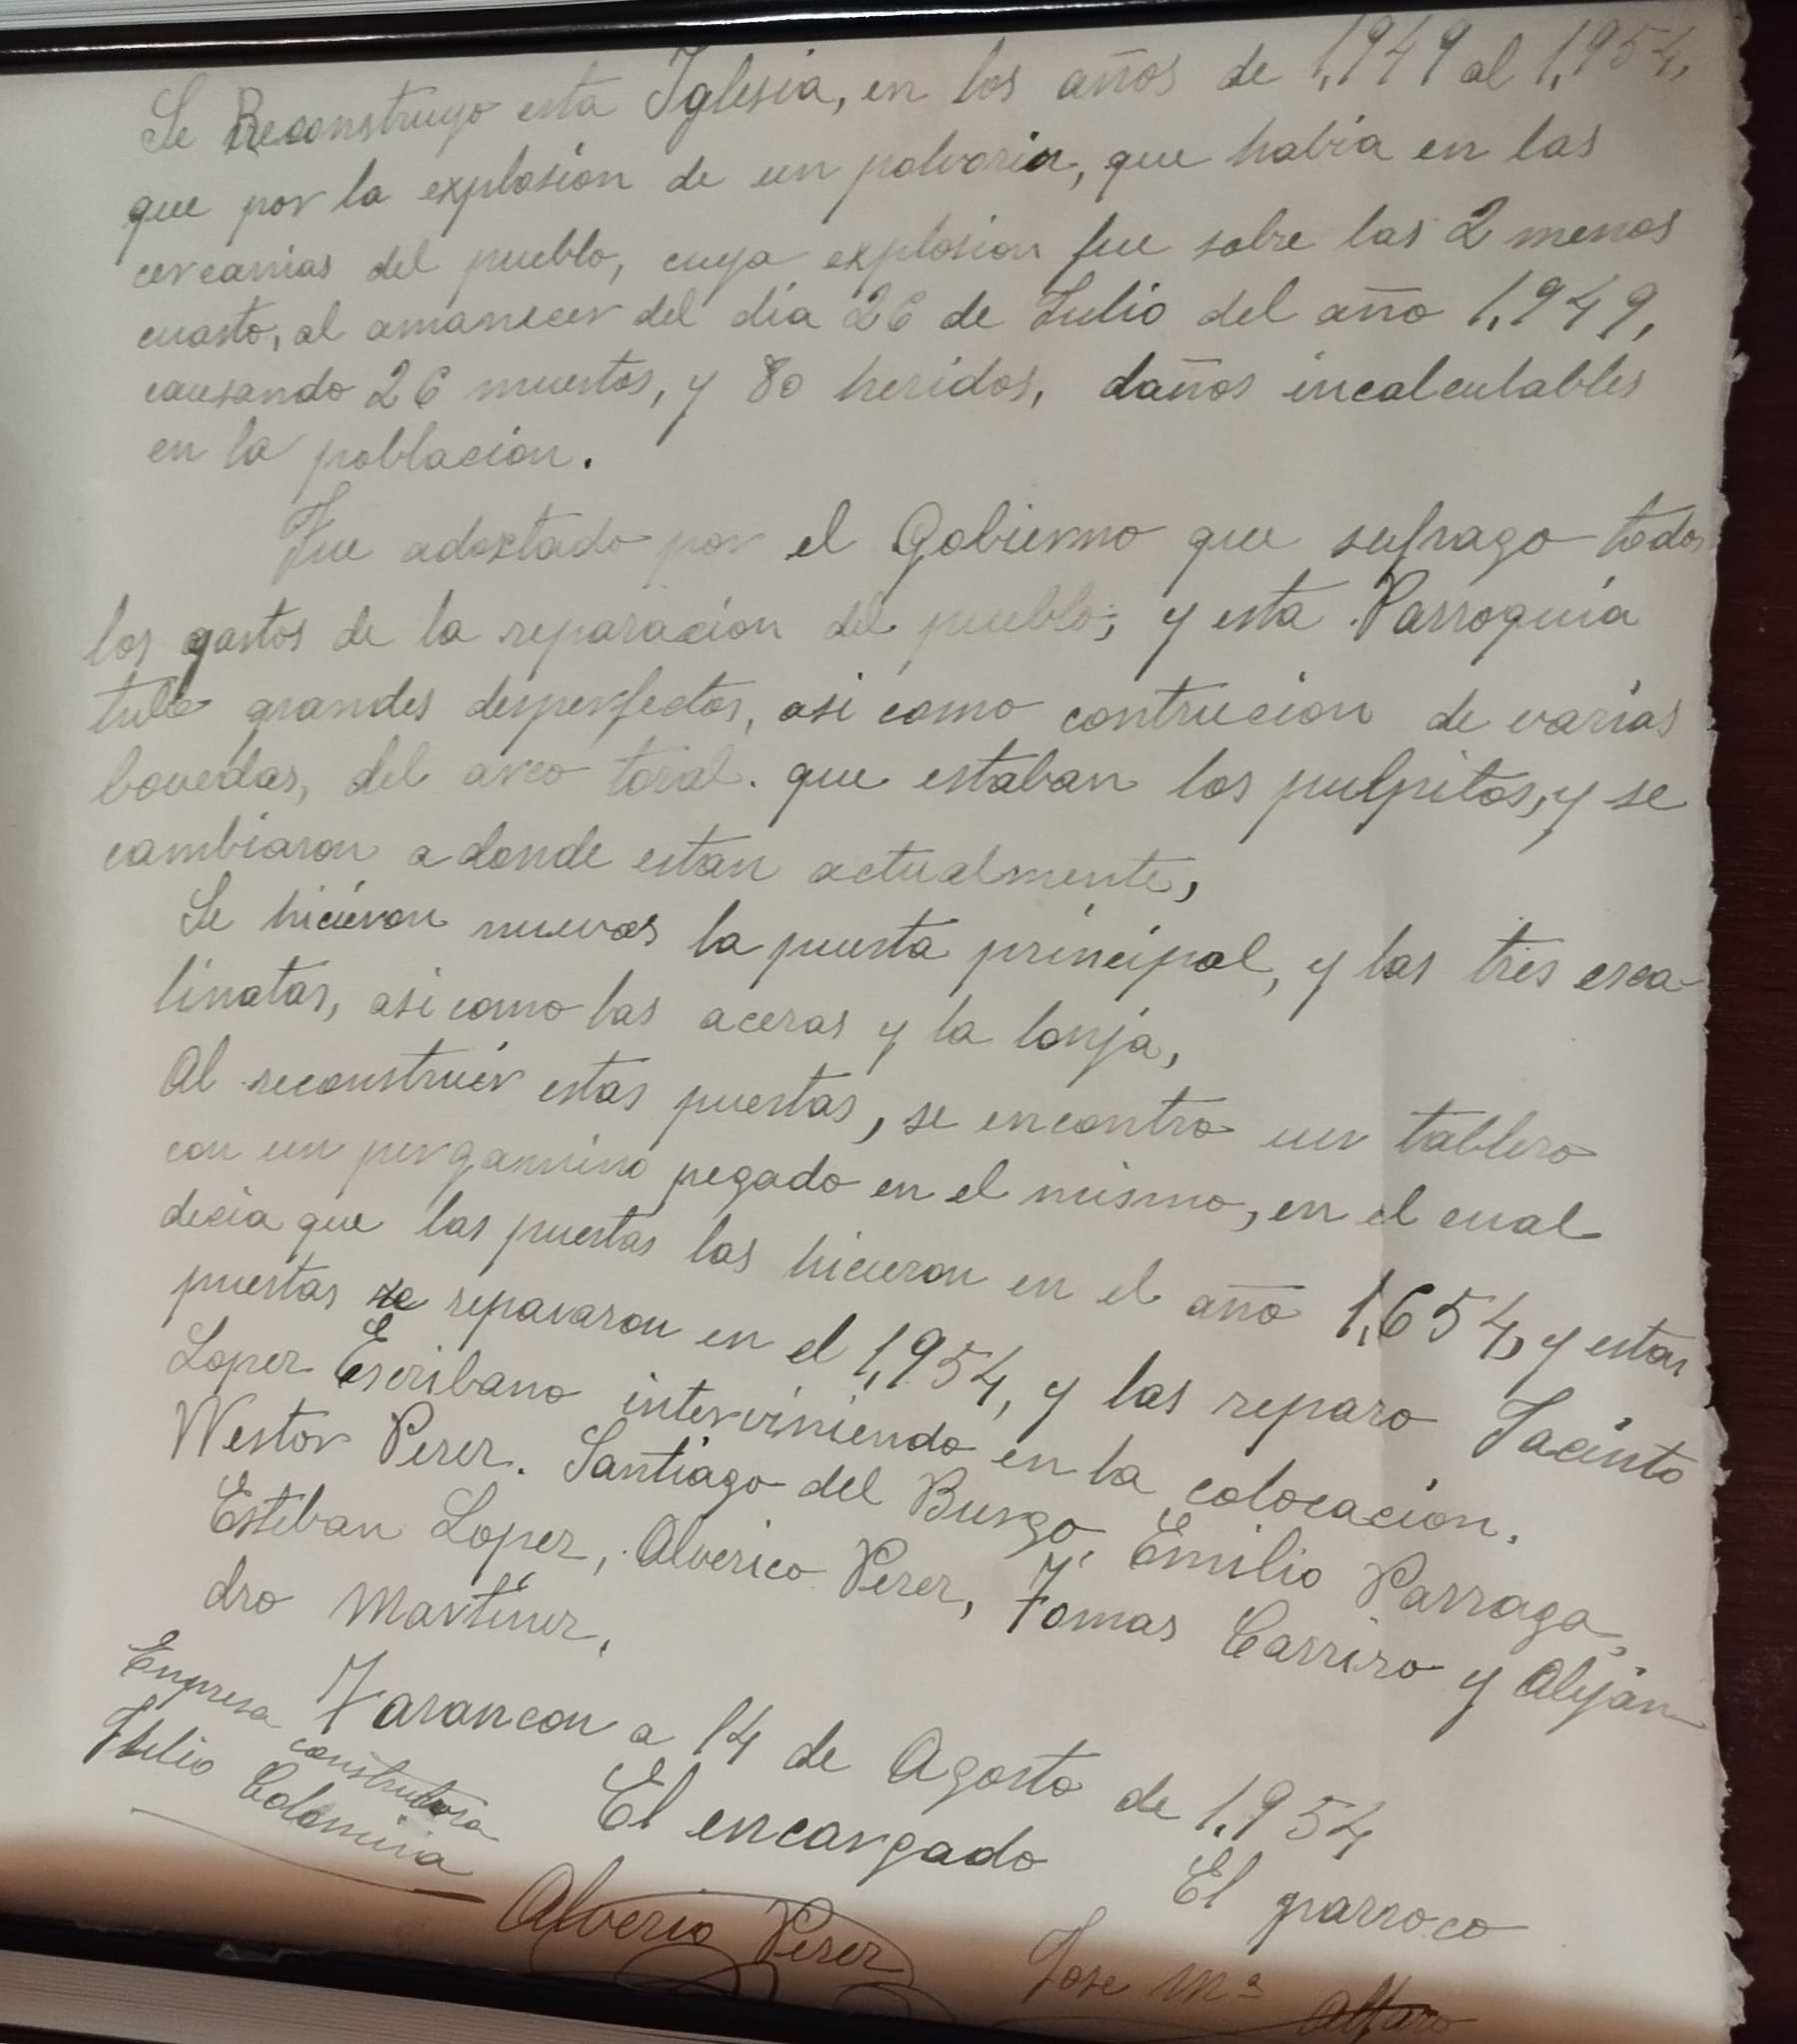 Se Reconstruyo esta Iglesia, en los años de 1,949 al 1,954,
que por la explosión de un polvorin, que habia en las
cercanias del pueblo, cuya explosion fue sobre las 2 menos
cuarto, al amanecer del dia 26 de Julio del año 1,949,
causando 26 muertos, y 80 heridos, daños incalculables
en la población.
Fue adoptado por el Gobierno que sufrago todos
los gastos de la reparación del pueblo; y esta Parroquia
tubo grandes desperfectos, asi como contrucion de varias
bovedas, del arco toral. que estaban los pulpitos, y se
cambiaron a donde estan actualmente,
Se hicieron nuevas la puerta principal, y las tres esca-
linatas, asi como las aceras y la lonja,
Al reconstruir estas puertas, se encontro un tablero
con un pergamino pegado en el mismo, en el cual
decia que las puertas las hicieron en el año 1,654, y estas
puertas se repararon en el 1,954, y las reparo Jacinto
Lopez Escribano interviniendo en la colocación.
Nestor Perez. Santiago del Burgo, Emilio Parraga,
Esteban Lopez, Alverico Perez, Tomas Carrizo y Alejan-
dro Martinez,
Tarancon a 14 de Agosto de 1,954
Empresa constructora
Julio Colomina
El encargado El parroco
Alverico Perez Jose Mª Alfaro